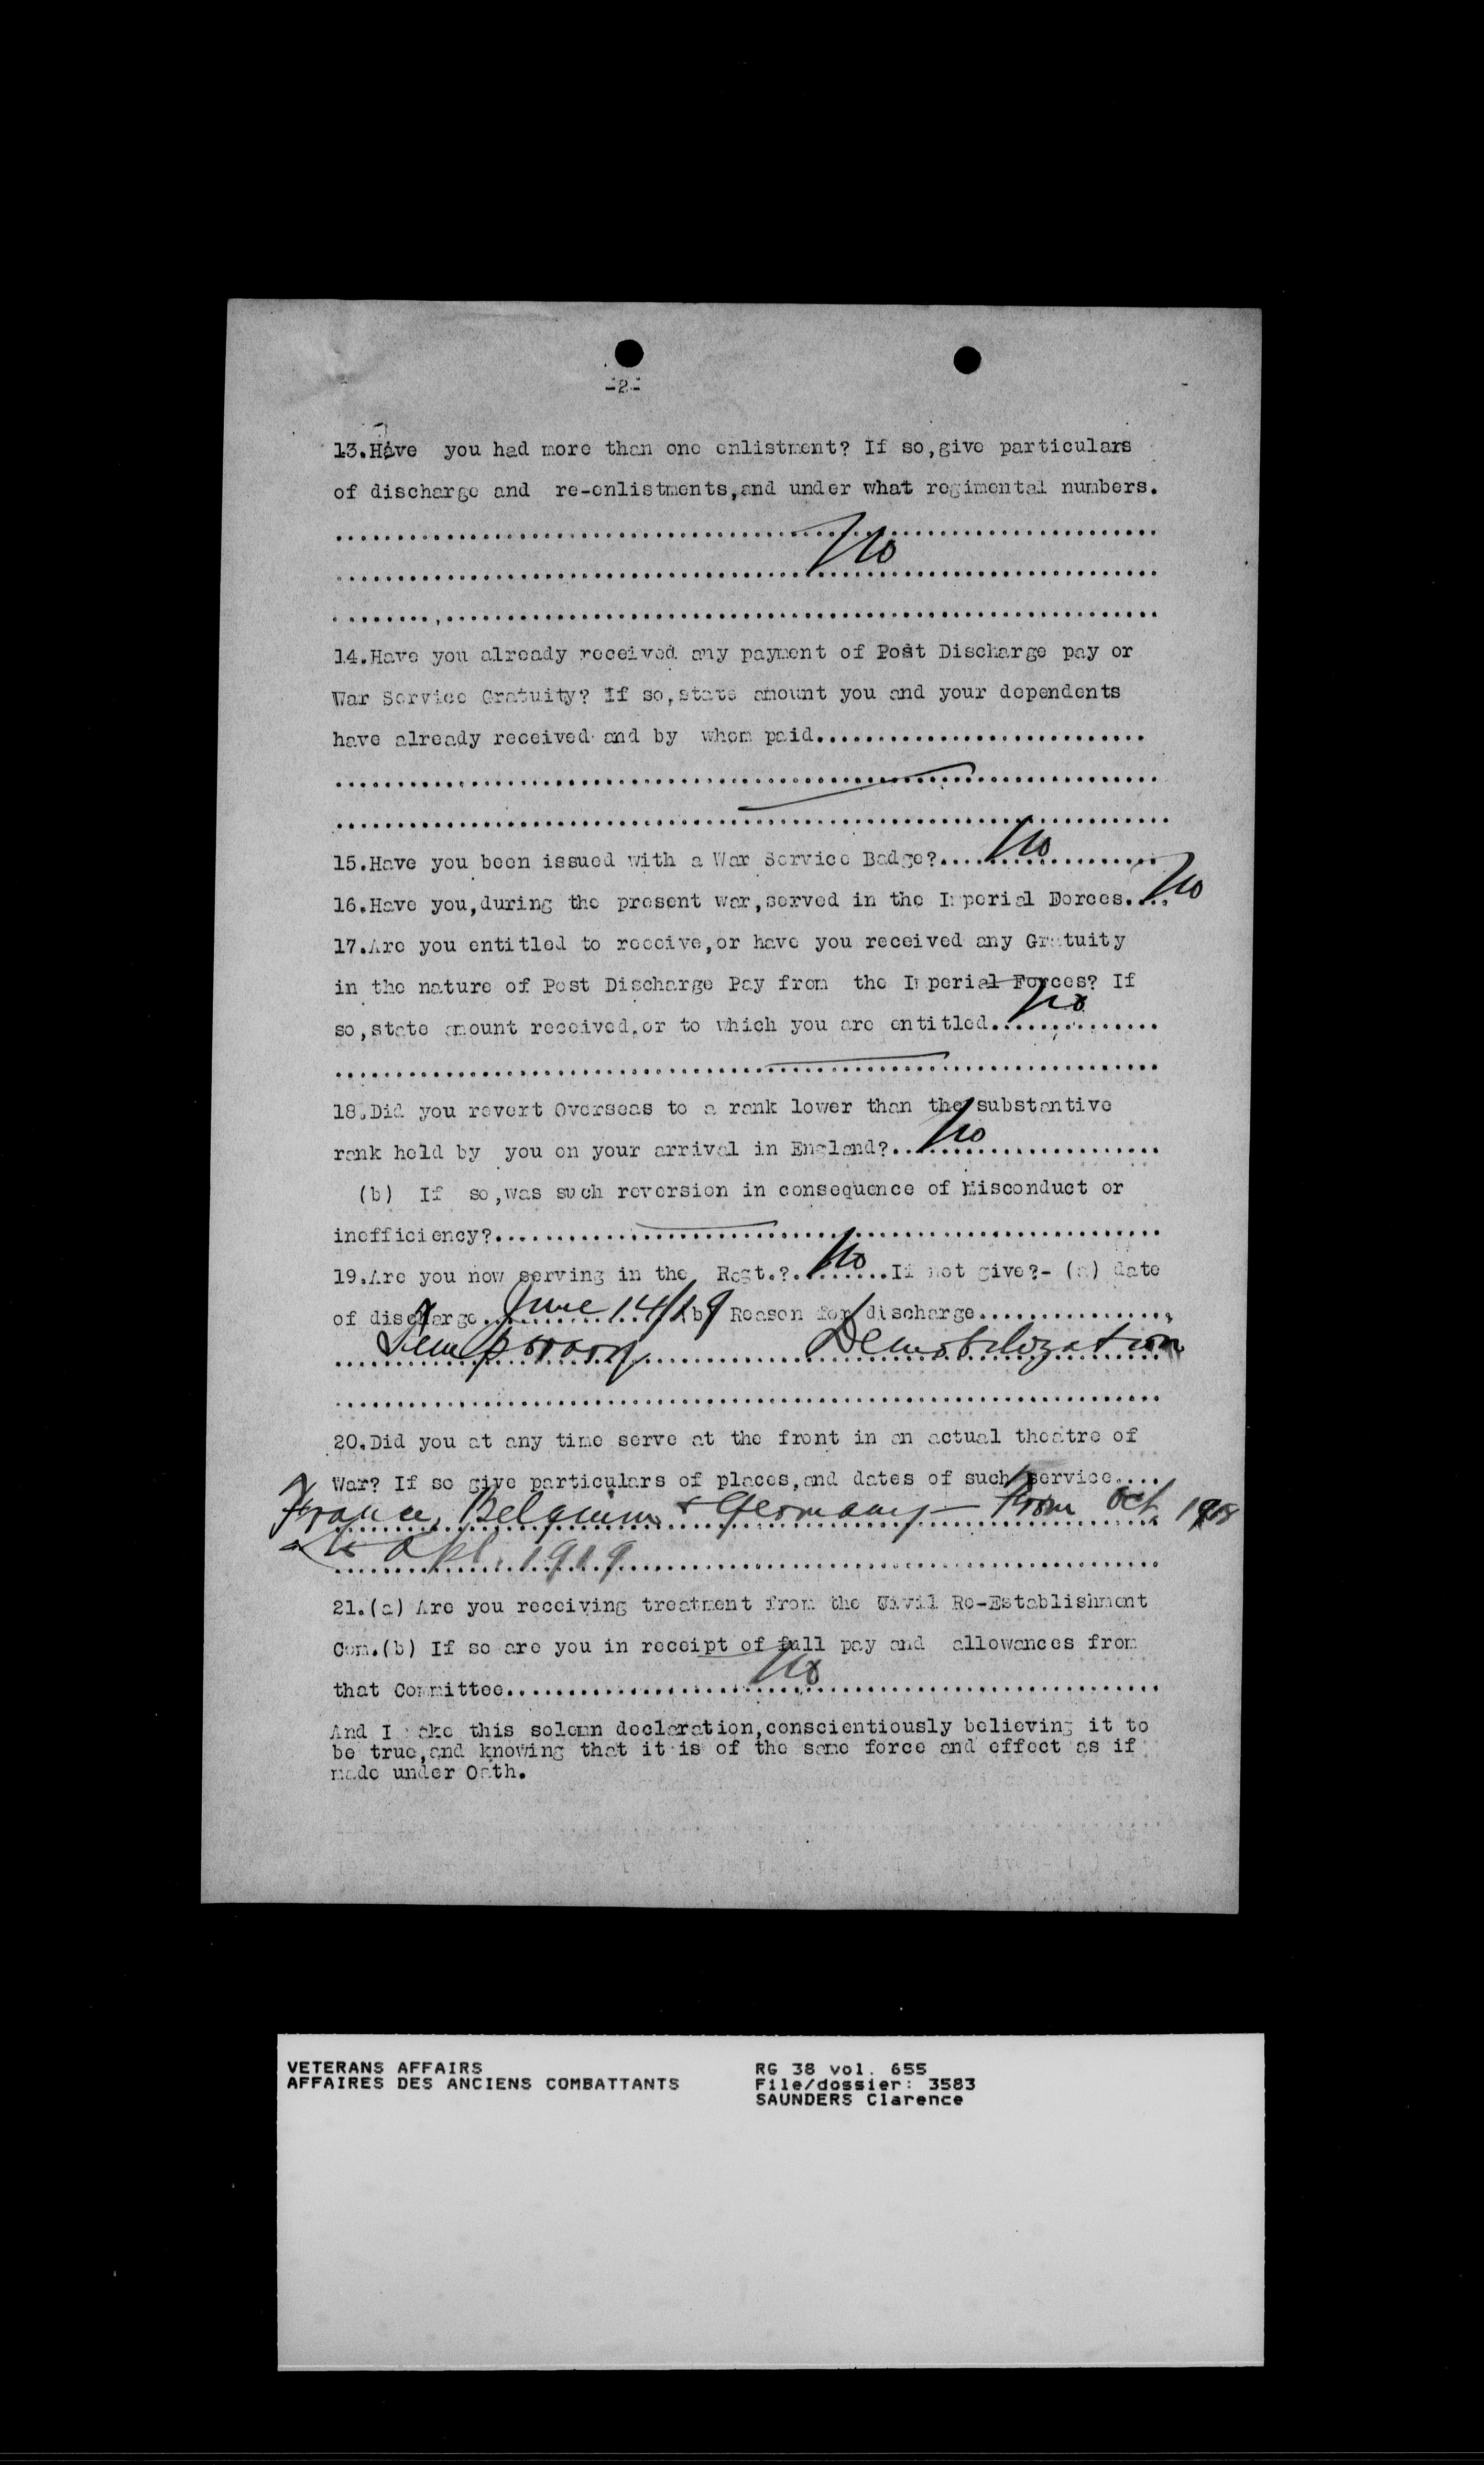 -2-
13.Have you had more than one enlistment? If so,give particulars
of discharge and re-enlistments,and under what regimental numbers.
No
14.Have you already received any payment of Post Discharge pay or
War Service Gratuity? If so,state amount you and your dependents
have already received and by whom paid...........................
15.Have you been issued with a War Service Badge?....No
16.Have you,during the present war,served in the Imperial Forces....No
17.Are you entitled to receive,or have you received any Gratuity
in the nature of Post Discharge Pay from the Imperial Forces? If
so,state amount received,or to which you are entitled....No
18.Did you revert Overseas to a rank lower than the substantive
rank held by you on your arrival in England?..No
(b) If so,was such reversion in consequence of Misconduct or
inefficiency?......................................................
19.Are you now serving in the Regt.?..No......If not give?- (a) date
of discharge..June 14/19 (b) Reason for discharge................
Temporary Demobilization
20.Did you at any time serve at the front in an actual theatre of
War? If so give particulars of places,and dates of such service....
France, Belgium & Germany - From Oct. 1918
to Apl. 1919
21.(a) Are you receiving treatment from the Civil Re-Establishment
Com.(b) If so are you in receipt of full pay and allowances from
that Committee....................No
And I make this solemn declaration,conscientiously believing it to
be true,and knowing that it is of the same force and effect as if
made under Oath.
VETERANS AFFAIRS RG 38 vol. 655
AFFAIRES DES ANCIENS COMBATTANTS File/dossier: 3583
SAUNDERS Clarence